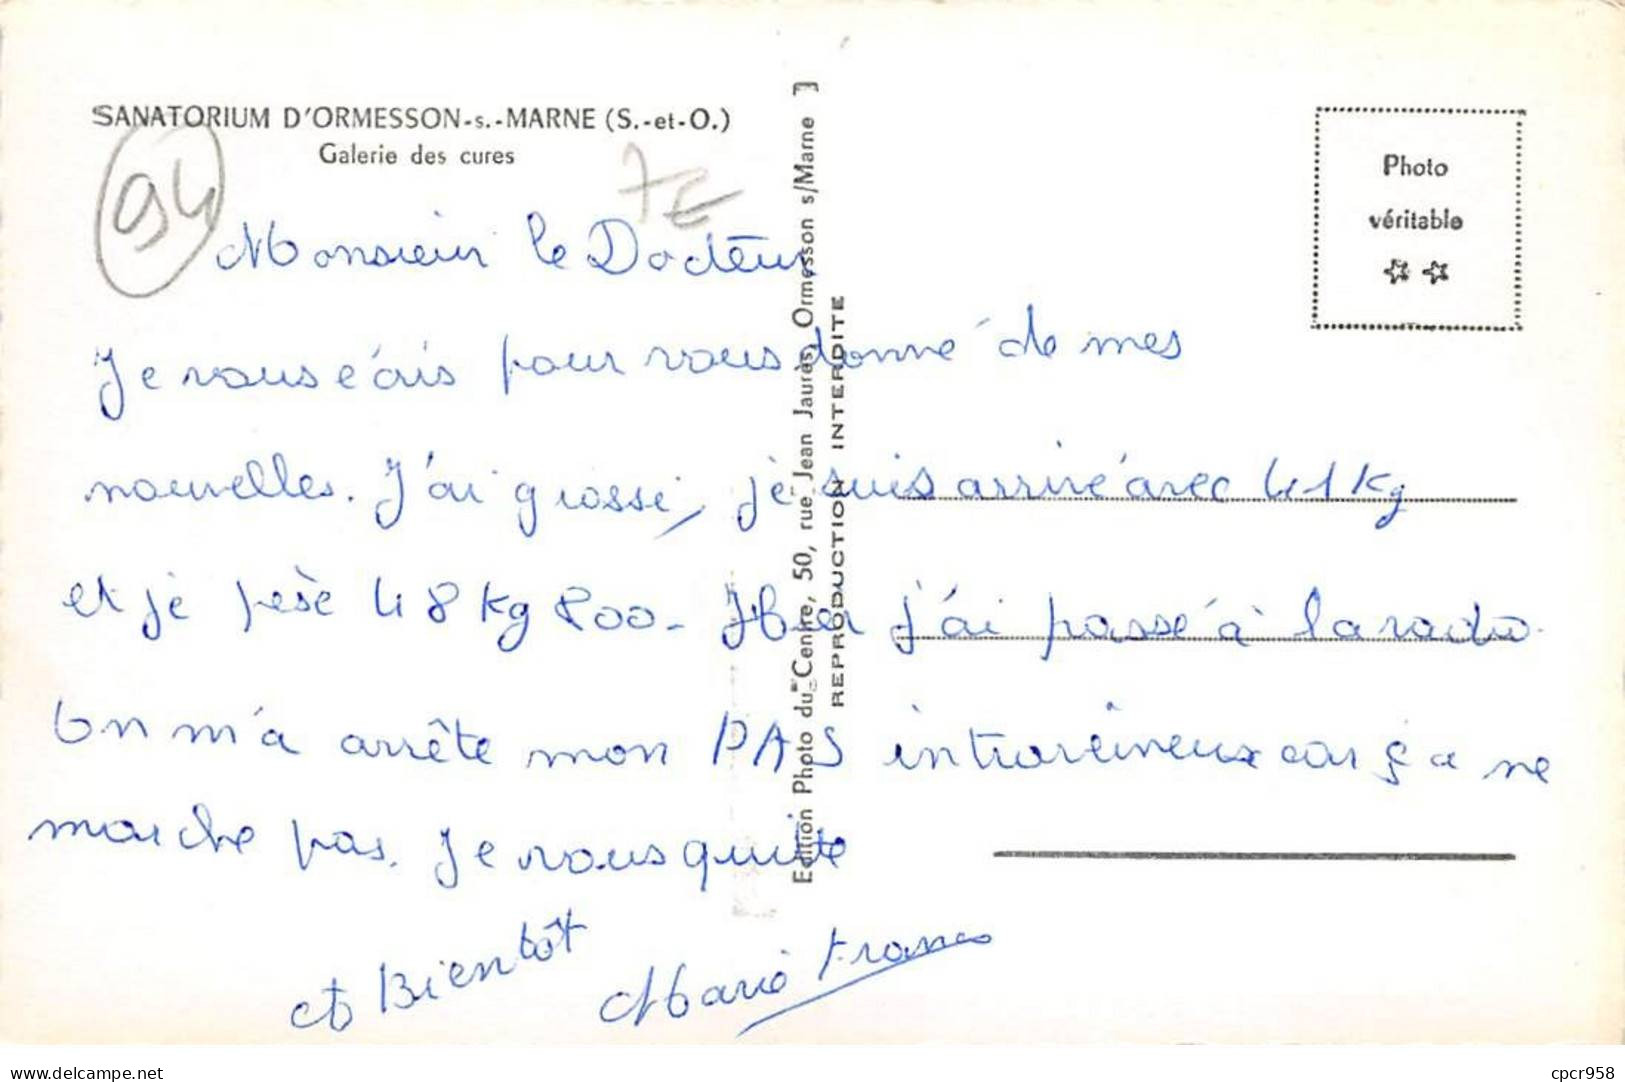 SANATORIUM D'ORMESSON-s.-MARNE (S.-et-O.)
Galerie des cures
94
7€
Photo
véritable
Edition Photo du Centre, 50, rue Jean Jaurès, Ormesson s/Marne
REPRODUCTION INTERDITE
Monsieur le Docteur,
Je vous écris pour vous donné de mes
nouvelles. J'ai grossi, je suis arrivé avec 41 kg
et je pèse 48 kg 800. Hier j'ai passé à la radio.
On m'a arrête mon PAS intraveineux car ça ne
marche pas. Je vous quitte
A Bientôt
Marie France
delcampe.net
cpcr958